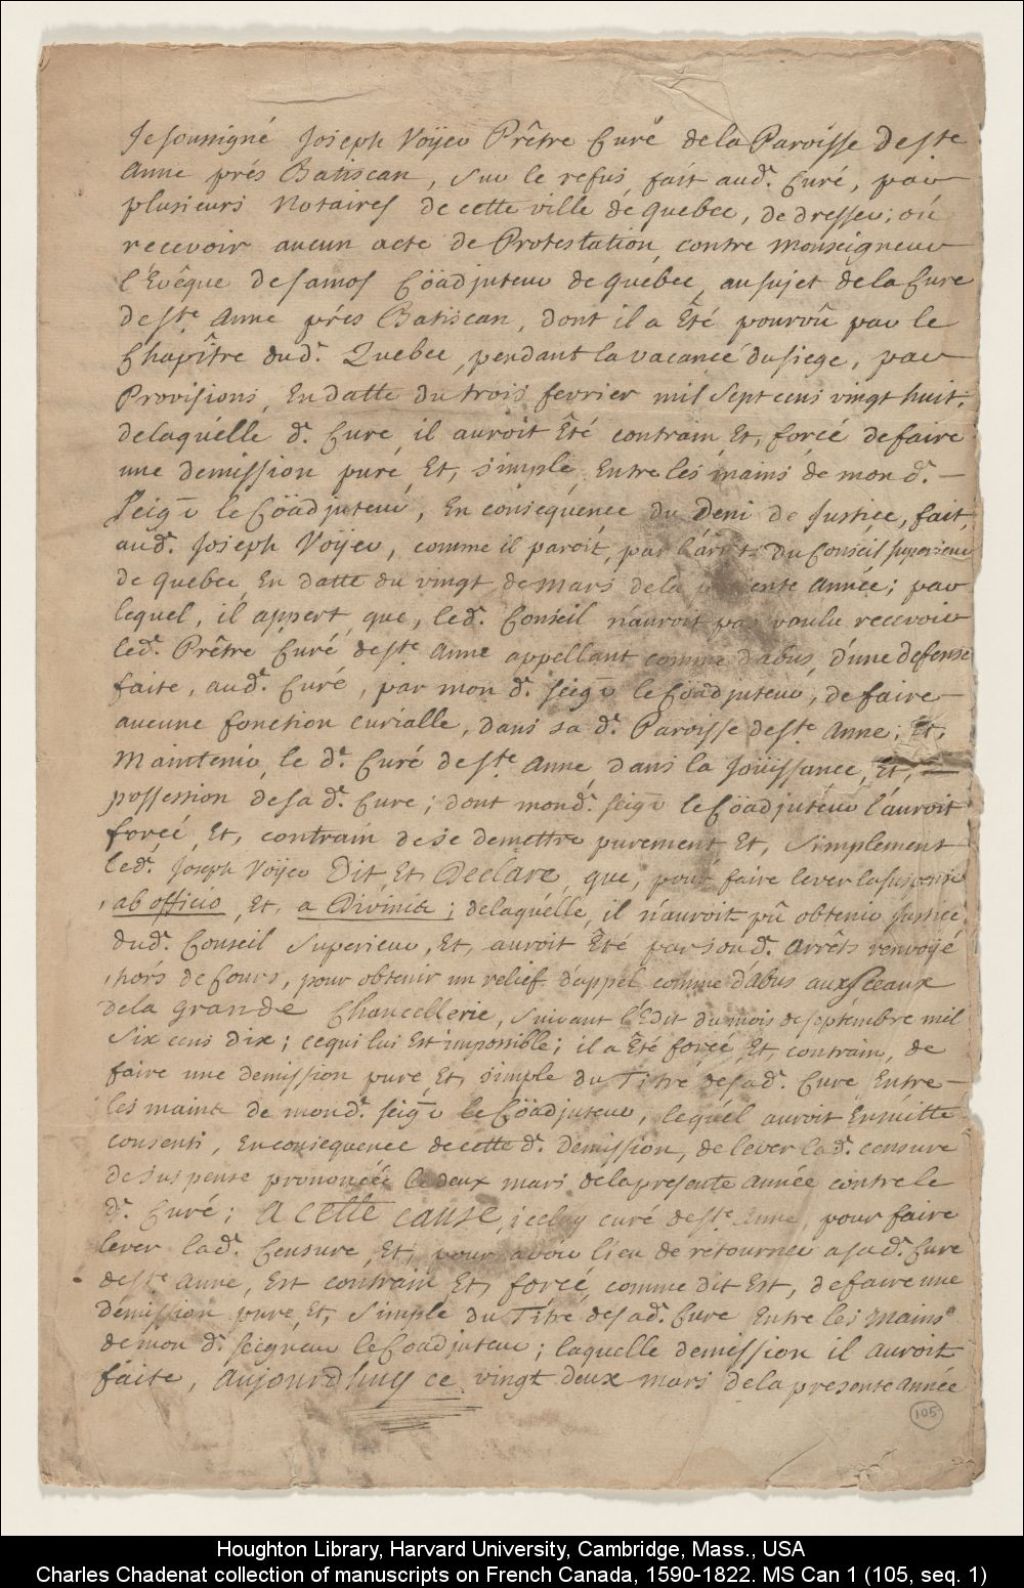 Je soussigné Joseph Voÿer Prêtre Curé de la Paroisse De Ste
Anne prés Batiscan, sur le refus, fait aud. Curé, par
plusieurs Notaires de cette ville de Quebec, de dresser; oú
recevoir aucun acte de Protestation, contre Monseigneur
l'Evêque de Samos Cöadjuteur de Quebec, au sujet de la Cure
de Ste Anne prés Batiscan, dont il a Eté pourvû par le
Chapître dud. Quebec, pendant la vacance du siege, par
Provisions, En datte du trois fevrier mil sept cens vingt huit;
de laquélle de. Cure il auroit Êté contrain, Et, forcé de faire
une demission puré, Et, simple, Entre les mains de mon d. —
Seigr le Cöadjuteur, En conséquénce du Deni de Justice, fait,
aud. Joseph Voÿer, comme il paroit, par l'arrêt du Conseil superieur
de Quebec En datte du vingt de Mars de la presente Année; par
lequel, il appert que, led. Conseil n'auroit pas voulu recevoir
led. Prêtre Curé de Ste Anne appellant comme d'abus, d'une defense
faite, aud. Curé, par mon d. Seigr le Cöadjuteur, de faire
aucune fonction curialle, dans sa d. Paroisse de Ste Anne; Et,
Maintenir, le d. Curé de Ste Anne, dans la Joüissance, Et, —
possession de sa d. Cure; dont mond. seigr le Cöadjuteur l'auroit
forçé, Et, contrain de se demettre purement Et, simplement
led. Joseph Voÿer Dit, Et, Declare, que, pour faire lever la suspense
ab officio, Et, a Divinis; de laquélle, il n'auroit pû obtenir Justice,
dud. Conseil Superieur, Et, auroit Êté par son d. Arrêt renvoyé
hors de Cours, pour obtenir un relief d'appel comme d'abus aux Sceaux
de la Grande Chancellerie, suivant l'Edit du mois de septembre mil
six cens dix; ce qui lui Est impossible; il a Êté forçé, Et, contrain, de
faire une demission pure, Et, simple du Titre de sa d. Cure, Entre —
les mains de mond. seigr le Cöadjuteur, lequél auroit Ensuitte
consenti, En consequence de cette d. demission, de lever la d. censure
de suspense prononcée le deux mars de la presente Année contre le
d. Curé; A cette cause, icelui curé de Ste Anne, pour faire
lever lad. Censure, Et, pour avoir lieu de retourner a sa d. Cure
de Ste Anne, Est contrain, Et, forcé, comme dit Est, de faire une
démission pure, Et, simple du Titre de sad. Cure Entre les Mains
de mon d. seigneur le Coadjuteur; laquelle demission il auroit
faite, aujourdhuy ce vingt deux mars de la presente Année
105
Houghton Library, Harvard University, Cambridge, Mass., USA
Charles Chadenat collection of manuscripts on French Canada, 1590-1822. MS Can 1 (105, seq. 1)